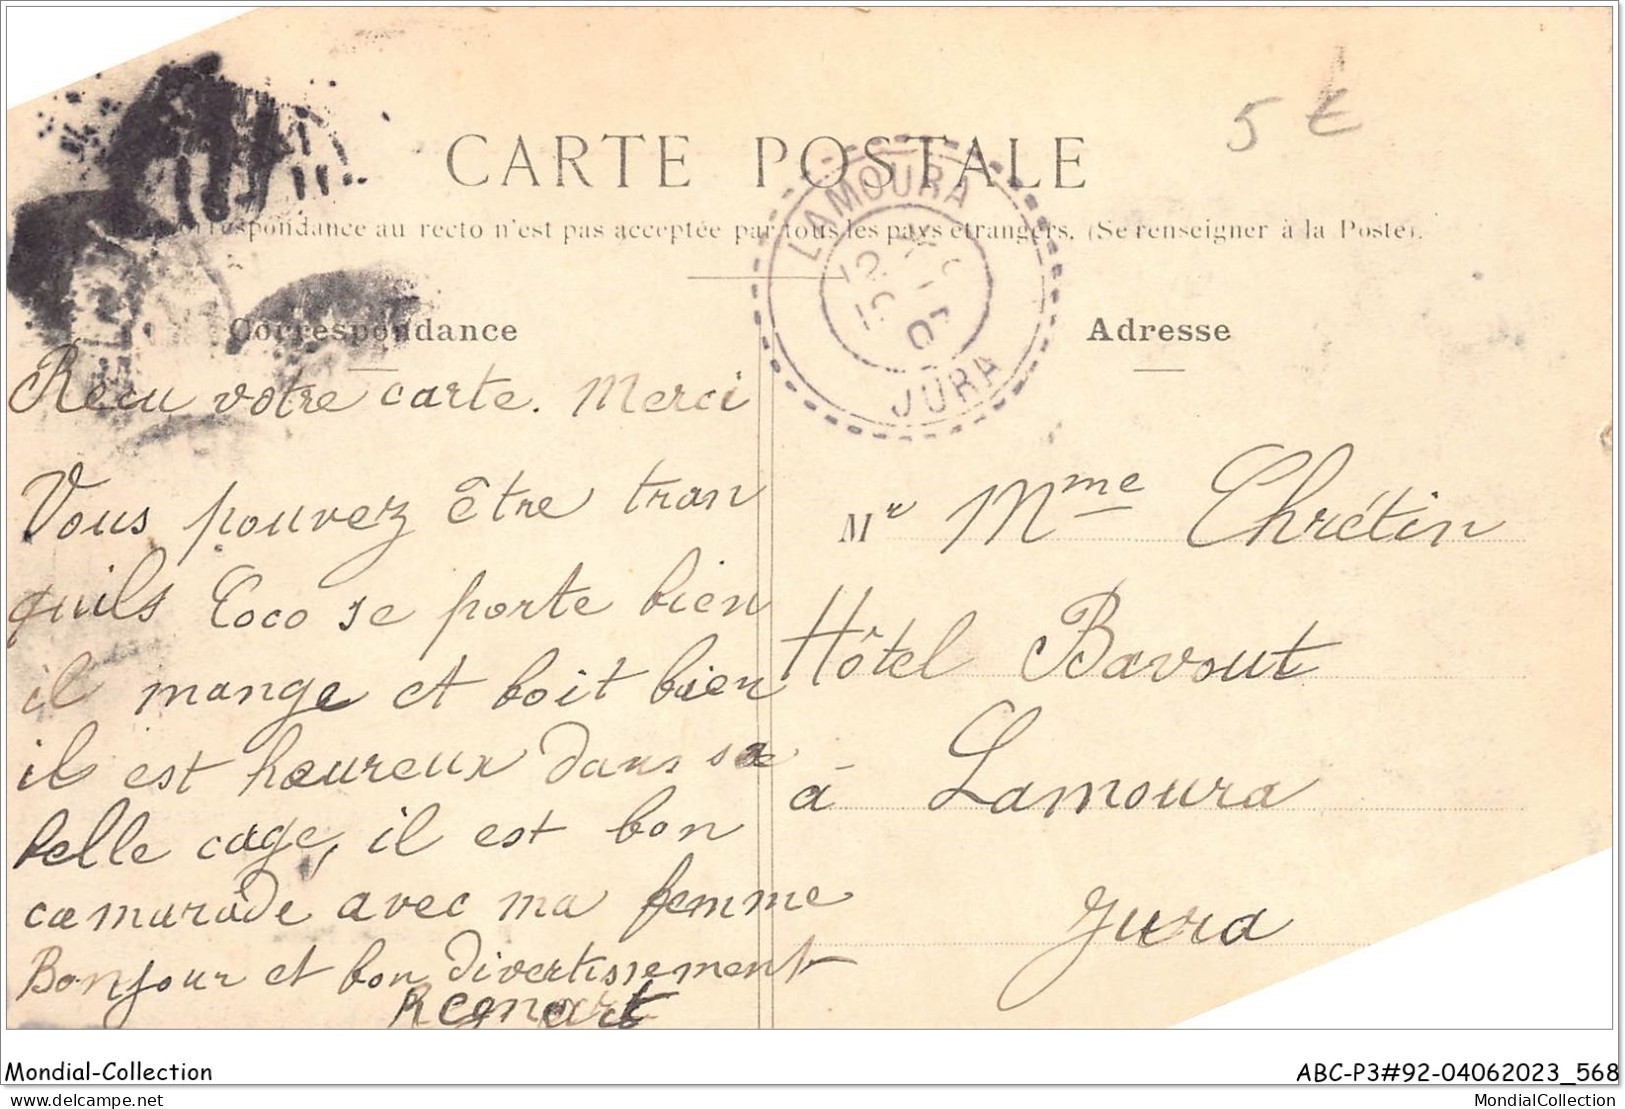 5 €
CARTE POSTALE
correspondance au recto n'est pas acceptée par tous les pays étrangers. (Se renseigner à la Poste).
LAMOURA
JURA
Correspondance
Adresse
Recu votre carte. Merci
Vous pouvez être tran
quils Coco se porte bien
il mange et boit bien
il est heureux dans sa
belle cage, il est bon
camarade avec ma femme
Bonjour et bon divertissement
M Mme Chrétin
Hôtel Bavout
à Lamoura
Jura
Mondial-Collection
ABC-P3#92-04062023_568
delcampe.net
MondialCollection